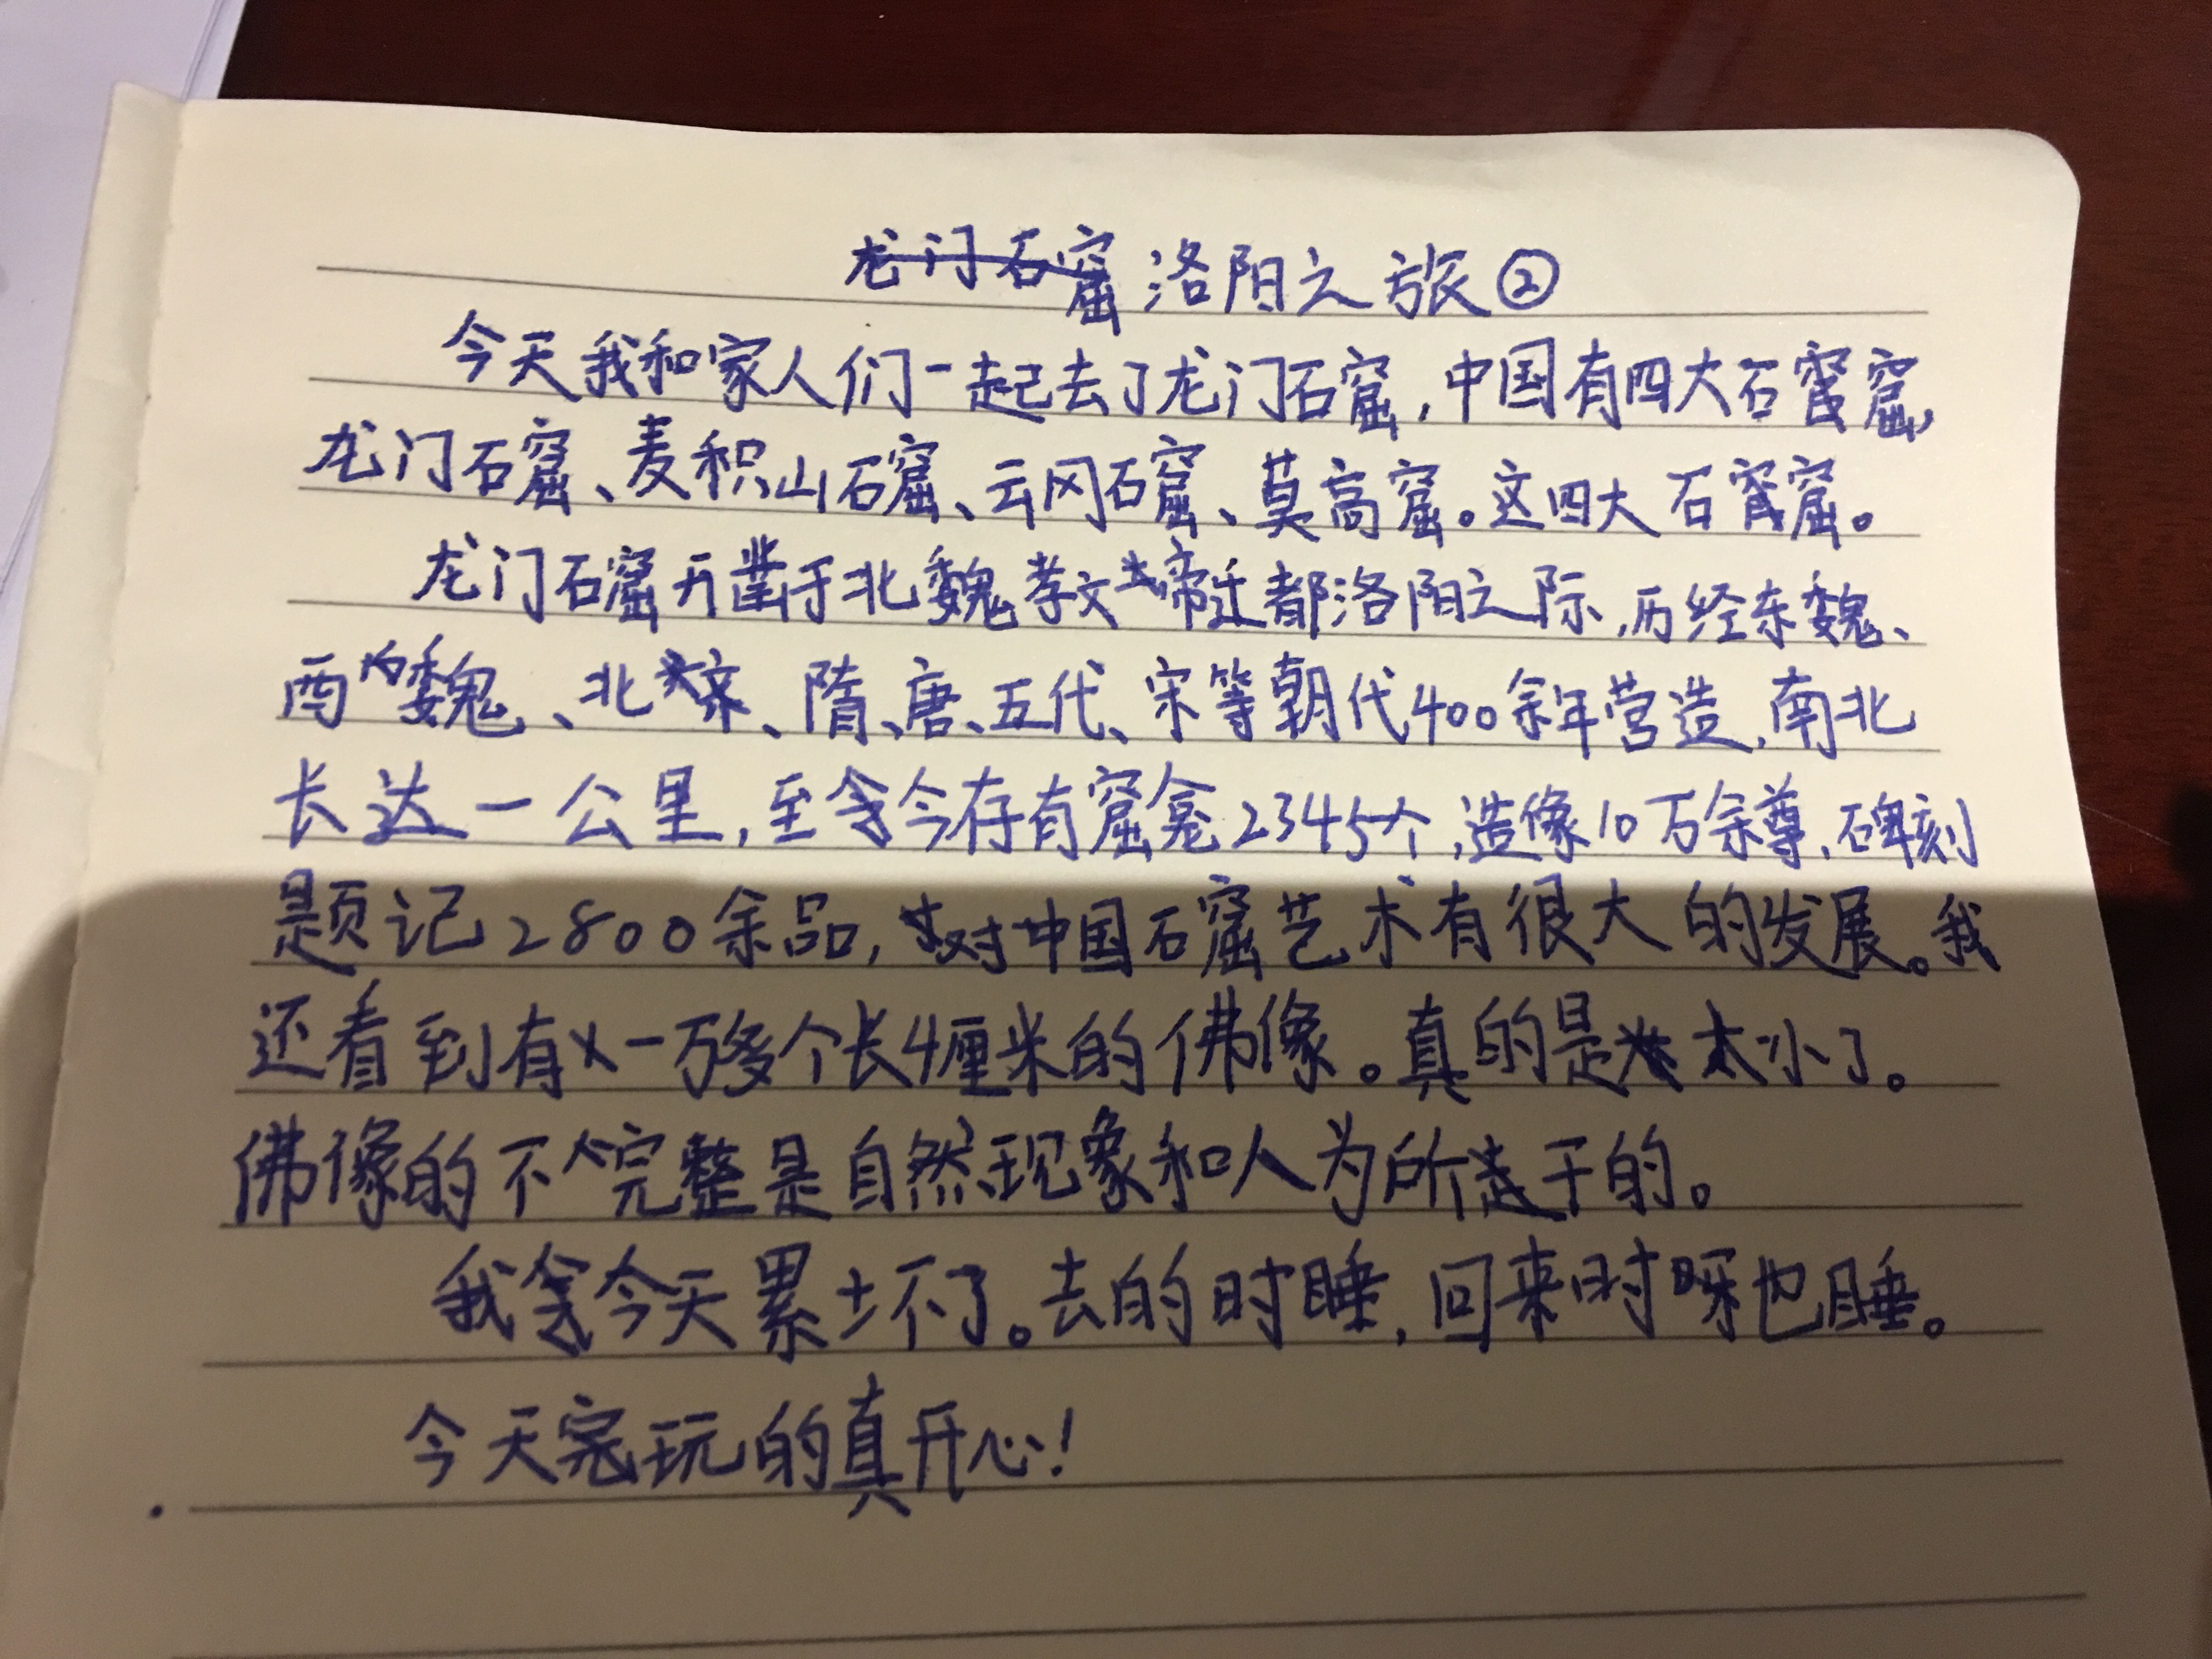 龙门石窟洛阳之旅②
今天我和家人们一起去了龙门石窟,中国有四大石窟,
龙门石窟、麦积山石窟、云冈石窟、莫高窟。这四大石窟。
龙门石窟开凿于北魏孝文帝迁都洛阳之际,历经东魏、
西魏、北齐、隋、唐、五代、宋等朝代400余年营造,南北
长达一公里,至今存有窟龛2345个,造像10万余尊,碑刻
题记2800余品,对中国石窟艺术有很大的发展。我
还看到有一万多个长4厘米的佛像。真的是太小了。
佛像的不完整是自然现象和人为所造于的。
我今天累坏了。去的时睡,回来时呀也睡。
今天玩的真开心!